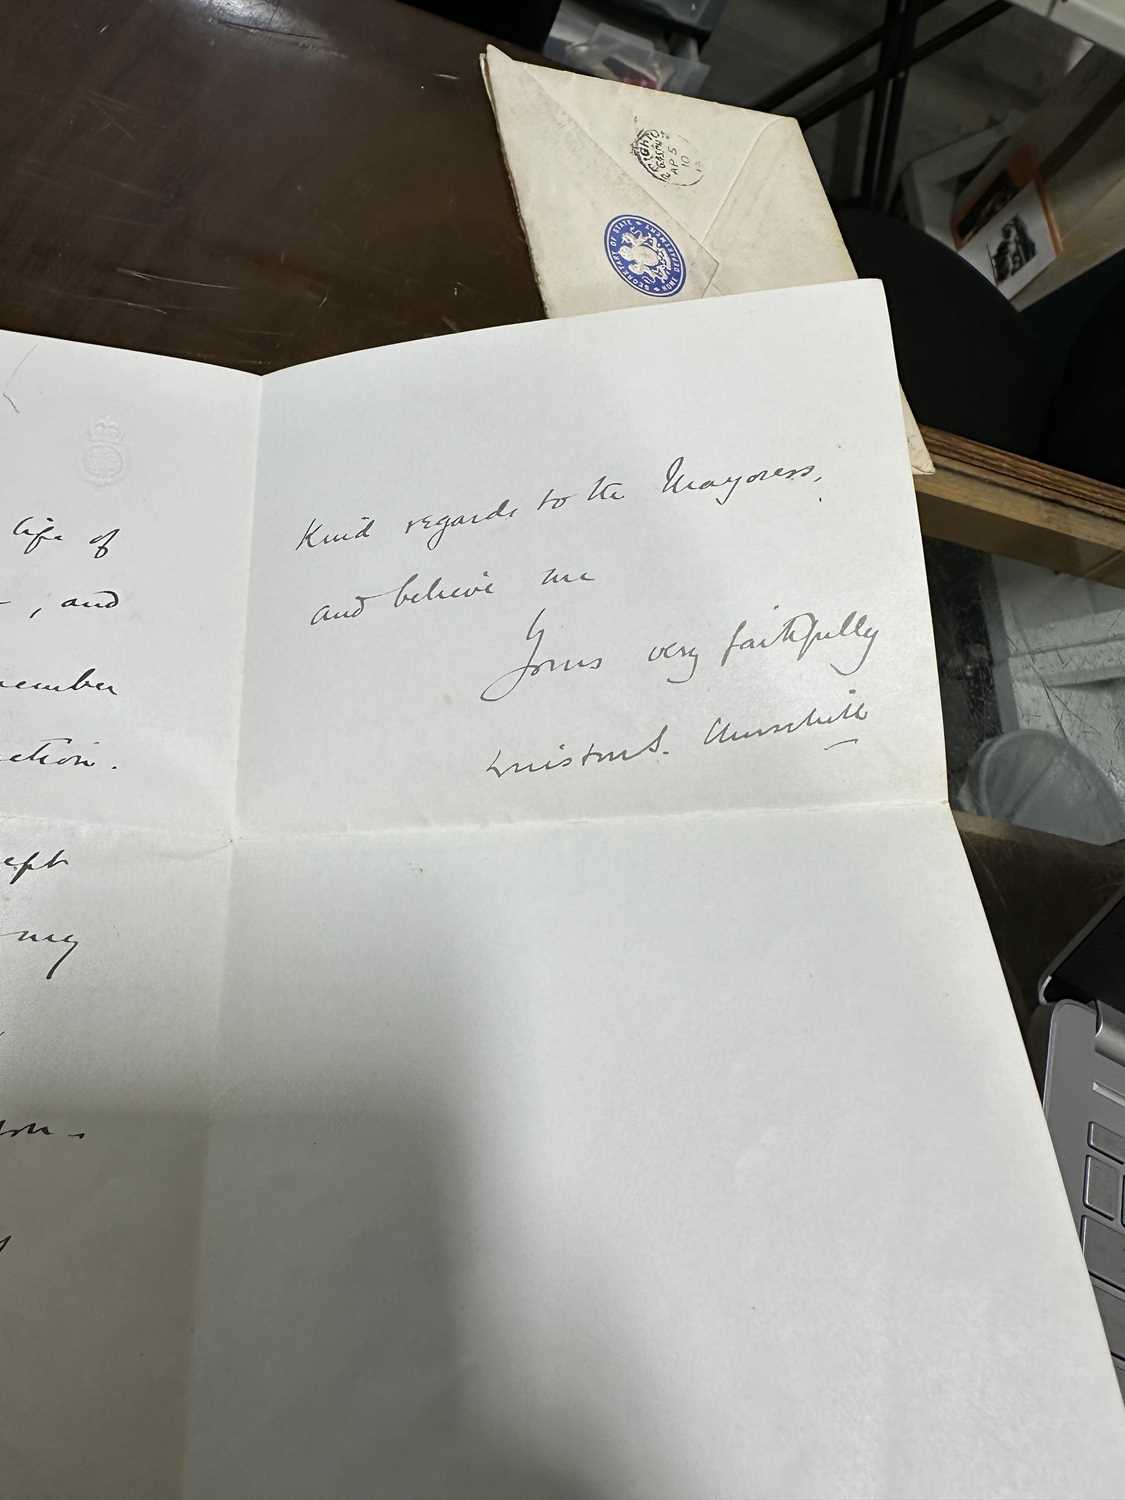 SECRETARY OF STATE
HOME DEPARTMENT
AP 5
10
life of
, and
ember
ction.
ept
my
Kind regards to the Mayoress,
and believe me
Yours very faithfully
Winston S. Churchill